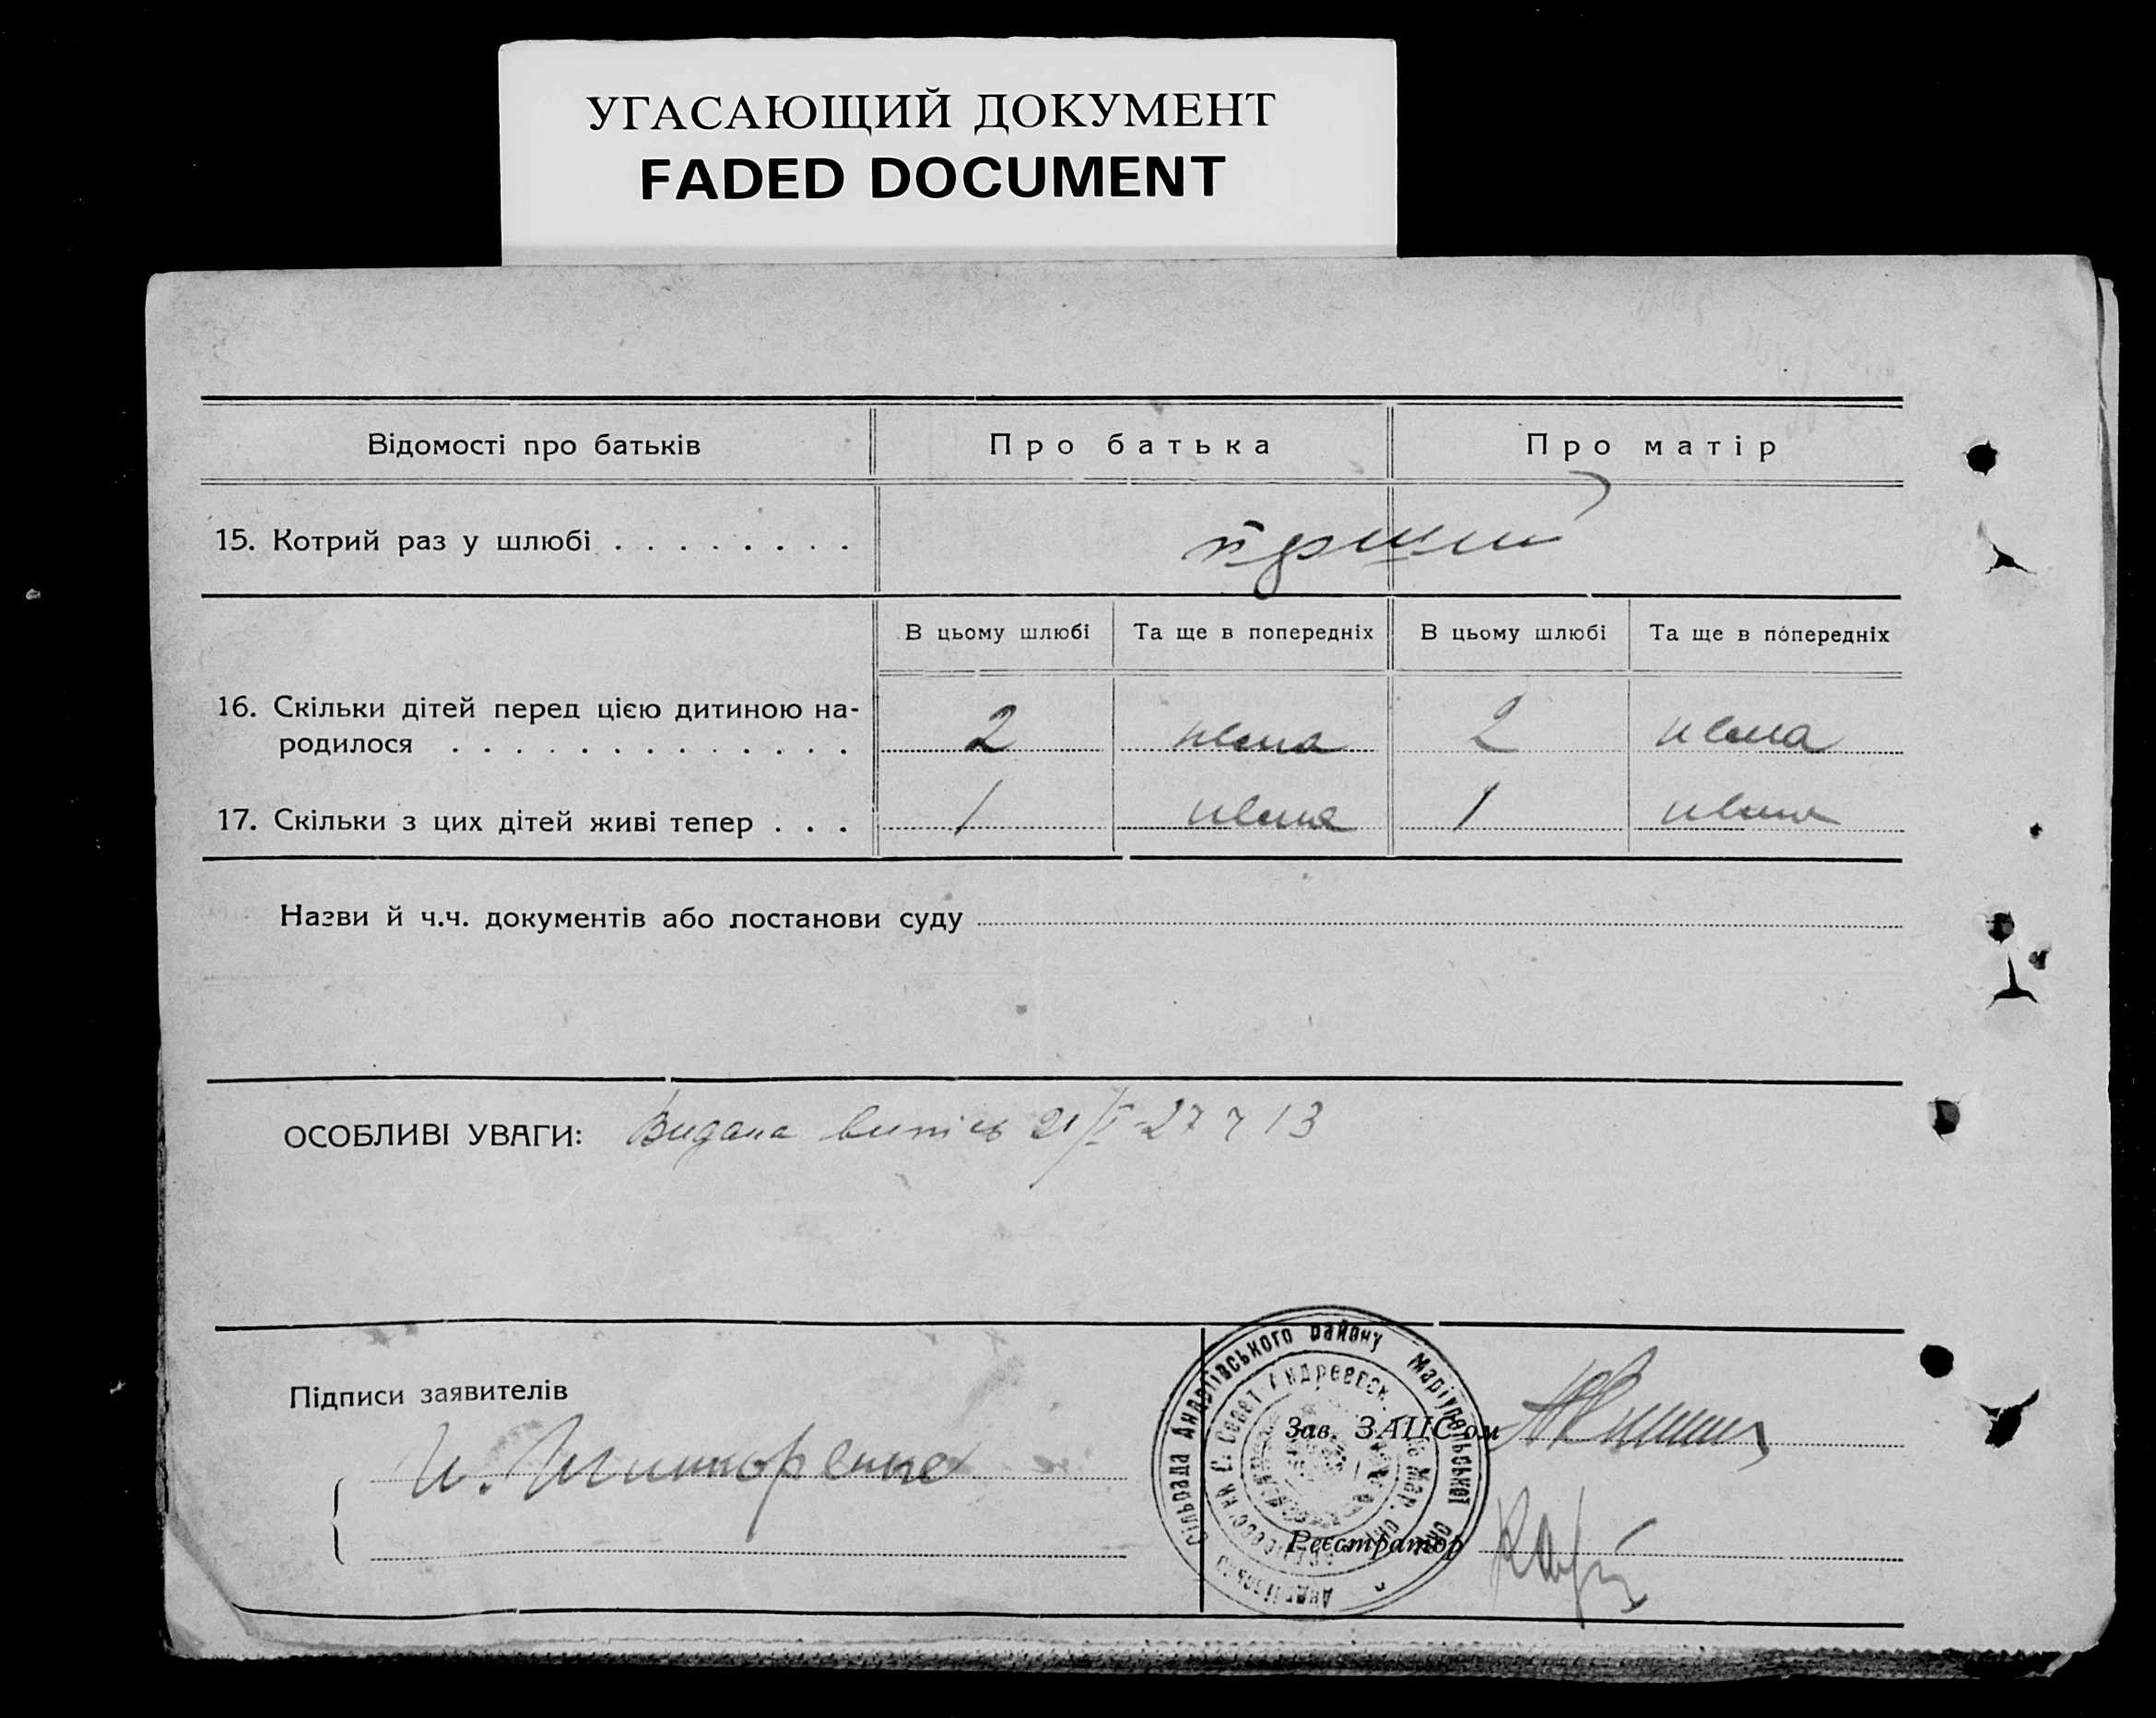 УГАСАЮЩИЙ ДОКУМЕНТ
FADED DOCUMENT
Відомості про батьків
Про батька
Про матір
15. Котрий раз у шлюбі . . . . . . . .
перший
В цьому шлюбі
Та ще в попередніх
В цьому шлюбі
Та ще в попередніх
16. Скільки дітей перед цією дитиною на-
родилося . . . . . . . . . . . . .
2
нема
2
нема
17. Скільки з цих дітей живі тепер . . .
1
нема
1
нема
Назви й ч.ч. документів або постанови суду
ОСОБЛИВІ УВАГИ: Видана випись 21/І-27 13
Підписи заявителів
Зав. ЗАГС'ом
Реєстратор
Сільрада Андріївського району Маріупольської